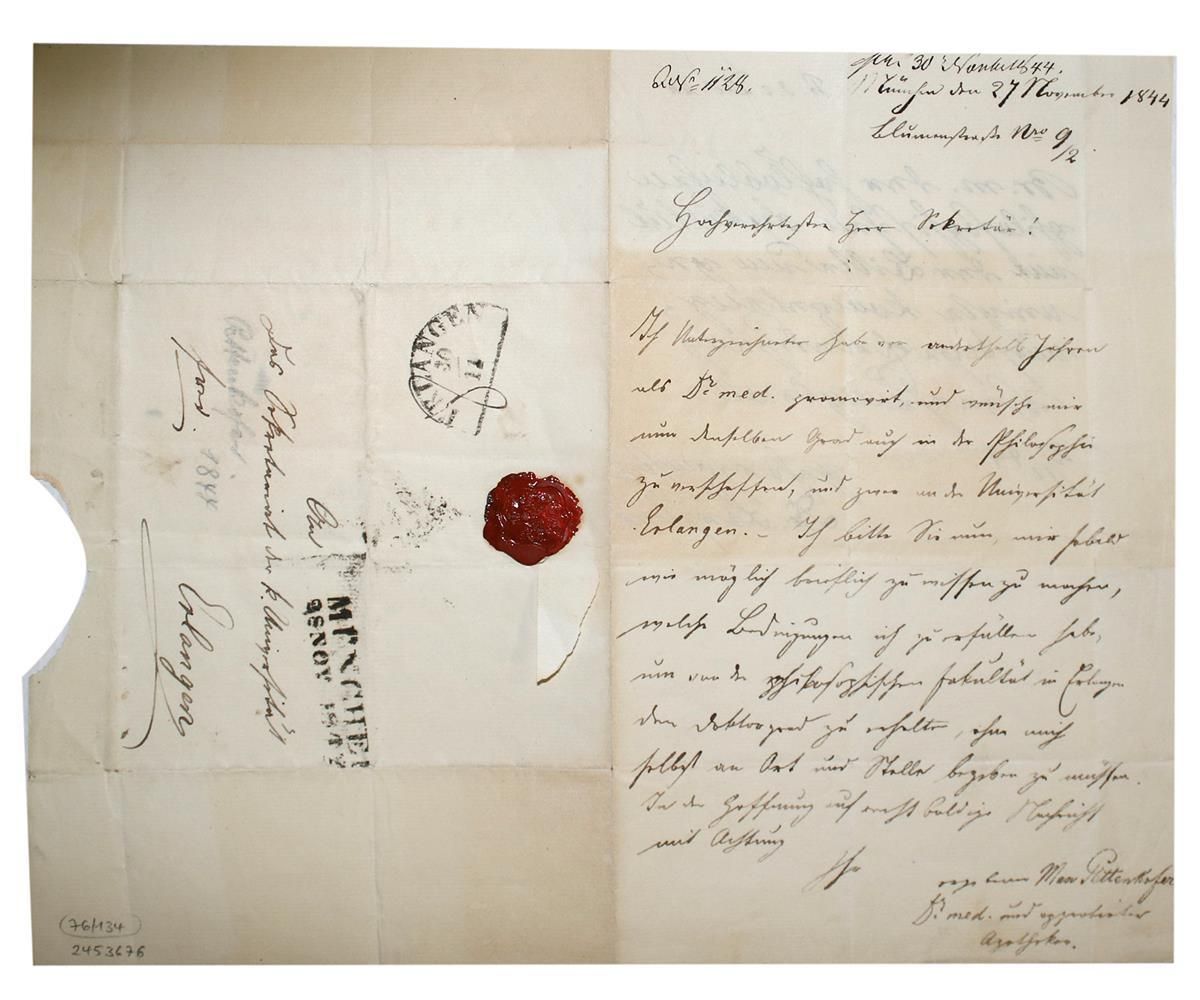 No 1128.
30 Novbr 44.
München den 27 November 1844
Blumenstraße Nro 9/2
Hochverehrtester Herr Sekretär!
Ich Unterzeichneter habe vor anderthalb Jahren
als Dr. med. promovirt, und wünsche mir
nun denselben Grad auch in der Philosophie
zu verschaffen, und zwar an der Universität
Erlangen. – Ich bitte Sie nun, mir sobald
wie möglich brieflich zu wissen zu machen,
welche Bedingungen ich zu erfüllen habe,
um von der philosophischen Fakultät in Erlangen
den Doktorgrad zu erhalten, ohne mich
selbst an Ort und Stelle begeben zu müssen.
In der Hoffnung auf recht baldige Nachricht
mit Achtung
Ihr
Max Pettenkofer
Dr. med. und approbirter
Apotheker.
ERLANGEN
30
11
MÜNCHEN
28 NOV 1844
An
Das Sekretariat der k. Universität
Erlangen
frei.
Pettenkofer.
1844
76/134
2453676